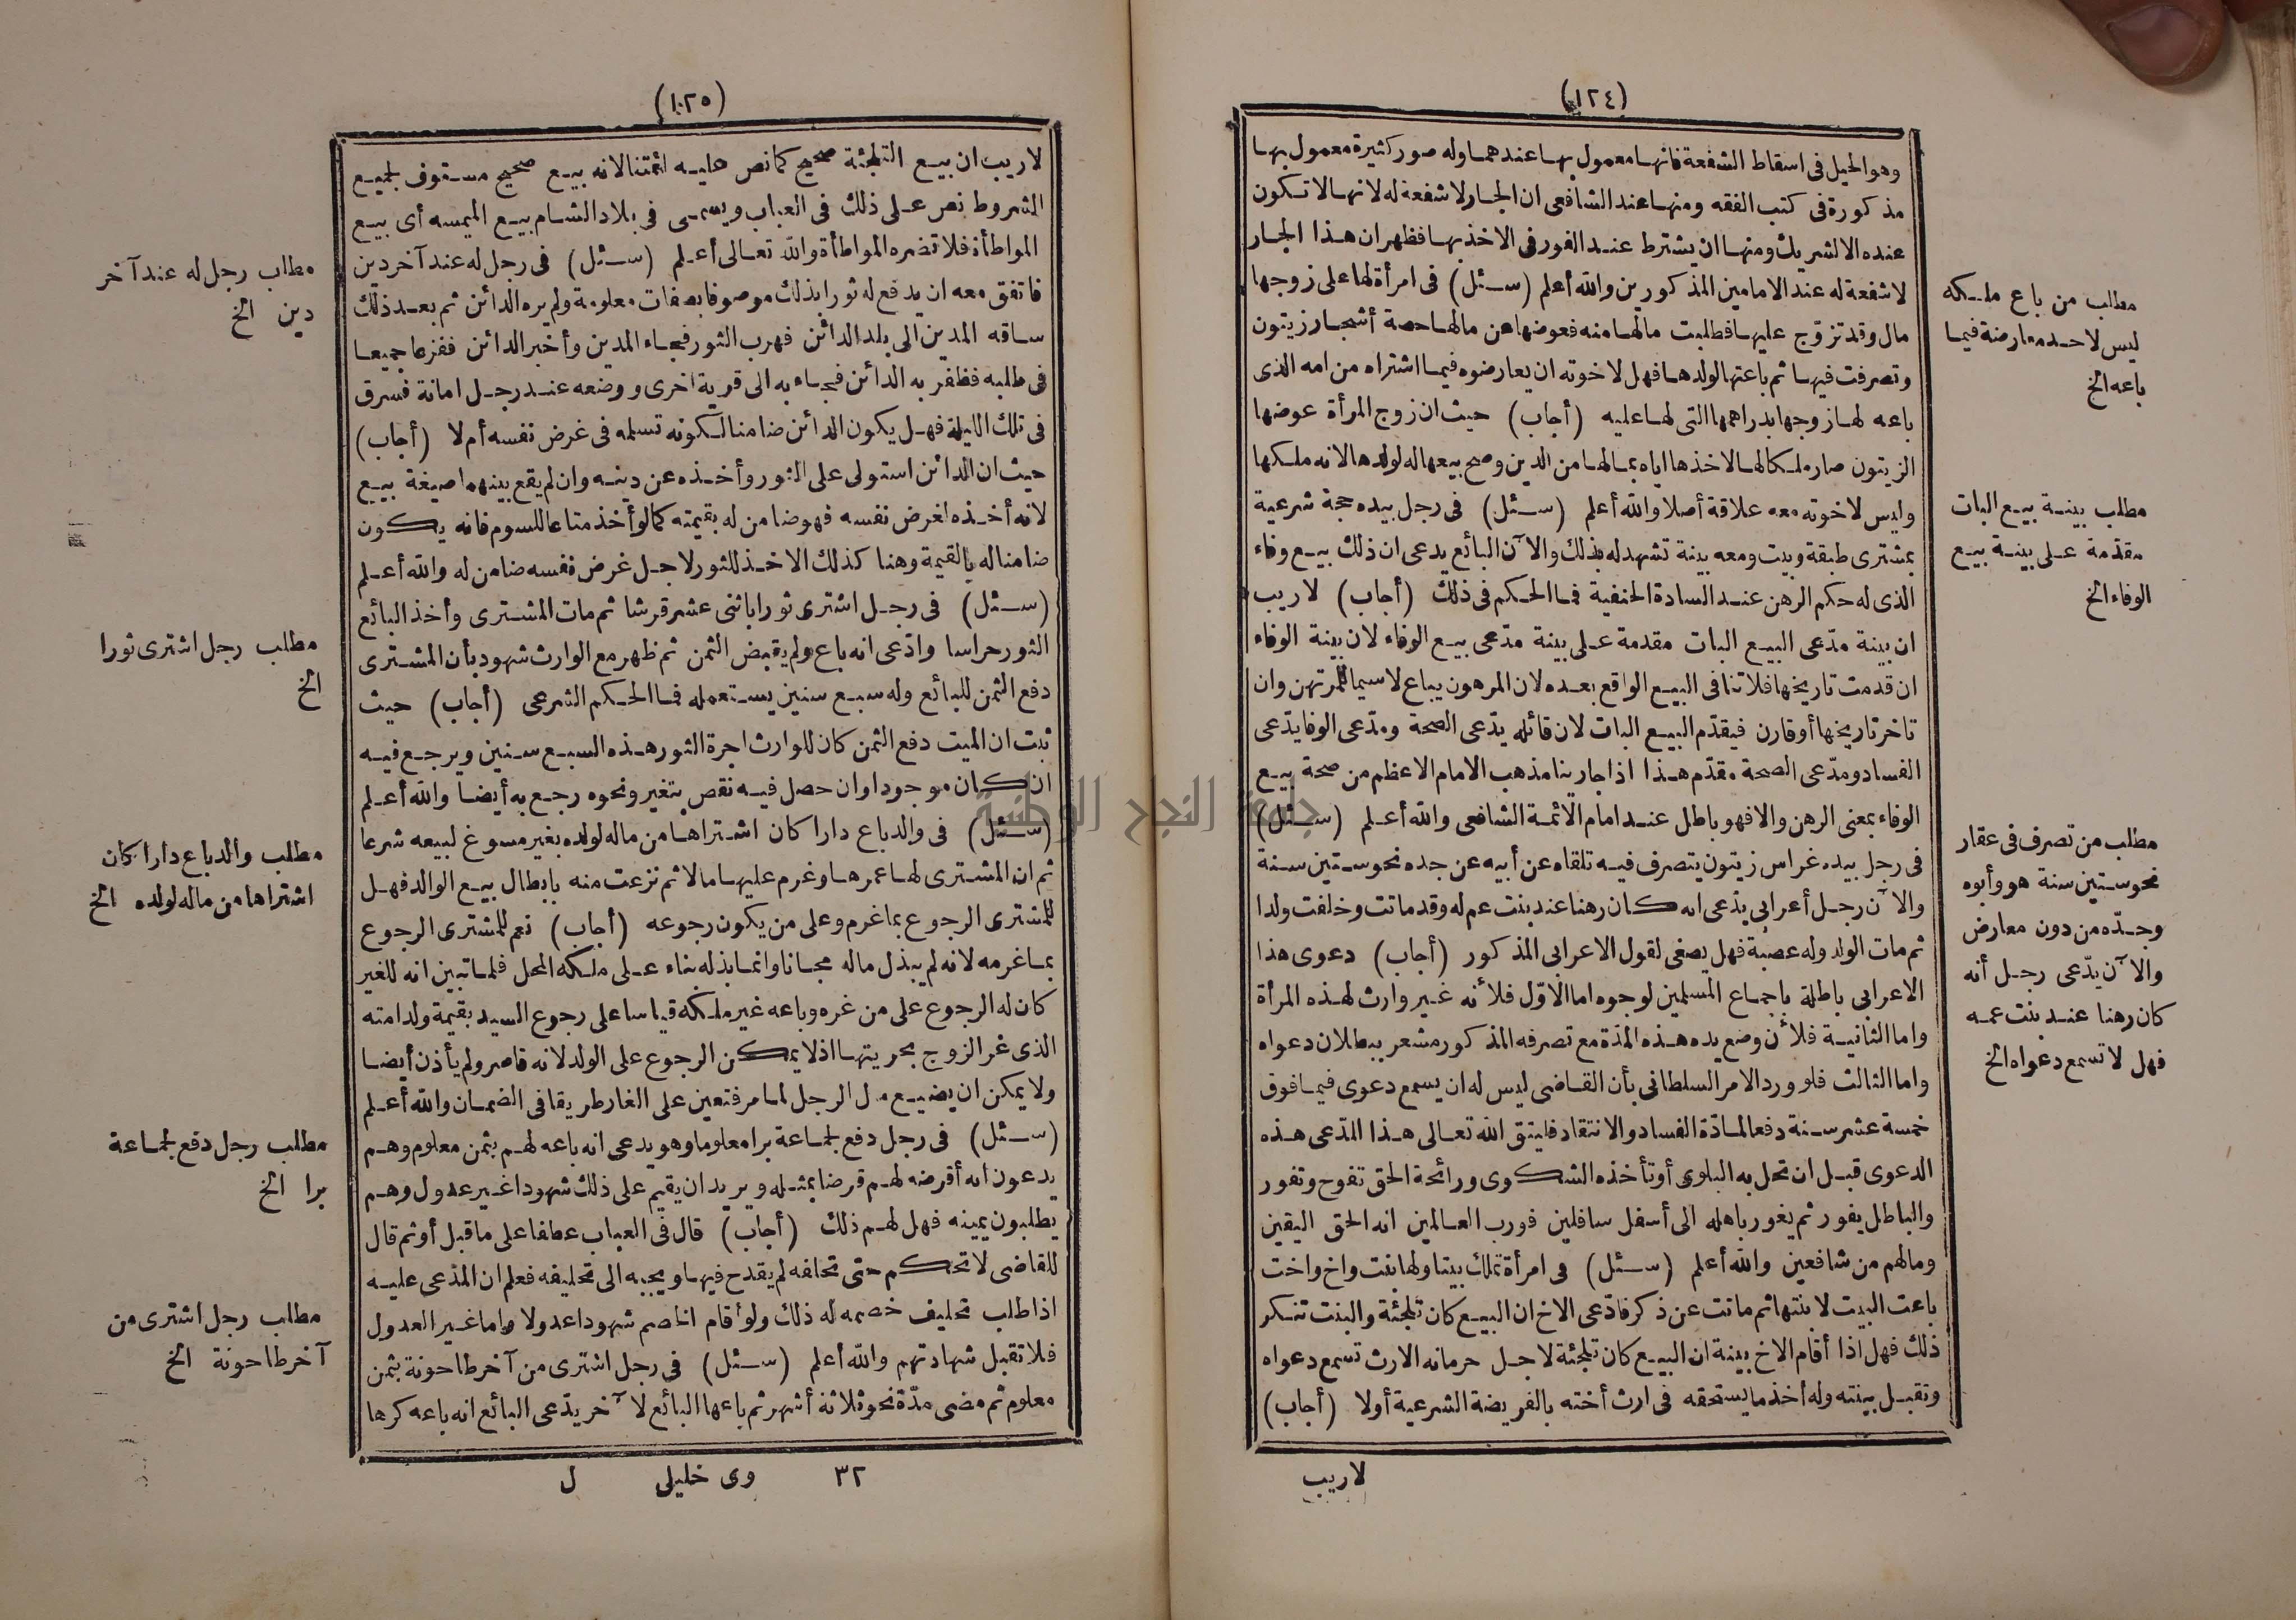 (١٢٤)
وهو الحيل فى اسقاط الشفعة فانها معمول بها عندهما وله صور كثيرة معمول بها
مذكورة فى كتب الفقه ومنها عند الشافعى ان الجار لا شفعة له لانها لا تكون
عنده الا لشريك ومنها ان يشترط عند الفور فى الاخذ بها فظهر ان هذا الجار
لا شفعة له عند الامامين المذكورين والله أعلم (سئل) فى امرأة لها على زوجها
مال وقد تزوّج عليها فطلبت مالها منه فعوضها عن مالها حصة أشجار زيتون
وتصرفت فيها ثم باعتها لولدها فهل لاخوته ان يعارضوه فيما اشتراه من امه الذى
باعه لها زوجها بدراهمها التى لها عليه (أجاب) حيث ان زوج المرأة عوضها
الزيتون صار ملكا لها لاخذها اياه بمالها من الدين وصح بيعها له لولدها لانه ملكها
وليس لاخوته معه علاقة أصلا والله أعلم (سئل) فى رجل بيده حجة شرعية
بمشترى طبقة وبيت ومعه بينة تشهد له بذلك والآن البائع يدعى ان ذلك بيع وفاء
الذى له حكم الرهن عند السادة الحنفية فما الحكم فى ذلك (أجاب) لا ريب
ان بينة مدّعى البيع البات مقدمة على بينة مدّعى بيع الوفاء لان بينة الوفاء
ان قدمت تاريخها فلا تنافى البيع الواقع بعده لان المرهون يباع لا سيما للمرتهن وان
تاخر تاريخها أو قارن فيقدّم البيع البات لان قائله يدّعى الصحة ومدّعى الوفا يدّعى
الفساد ومدّعى الصحة مقدّم هذا اذا جارينا مذهب الامام الاعظم من صحة بيع
الوفاء بمعنى الرهن والا فهو باطل عند امام الائمة الشافعى والله أعلم (سئل)
فى رجل بيده غراس زيتون يتصرف فيه تلقاه عن أبيه عن جده نحو ستين سنة
والآن رجل أعرابى يدّعى انه كان رهنا عند بنت عم له وقد ماتت وخلفت ولدا
ثم مات الولد وله عصبة فهل يصغى لقول الاعرابى المذكور (أجاب) دعوى هذا
الاعرابى باطلة باجماع المسلمين لوجوه اما الاوّل فلأنه غير وارث لهذه المرأة
واما الثانية فلأن وضع يده هذه المدّة مع تصرفه المذكور مشعر ببطلان دعواه
واما الثالث فلورود الامر السلطانى بأن القاضى ليس له ان يسمع دعوى فيما فوق
خمسة عشر سنة دفعا لمادّة الفساد والانتقاد فليتق الله تعالى هذا المدّعى هذه
الدعوى قبل ان تحل به البلوى أو تأخذه الشكوى ورائحة الحق تفوح وتفور
والباطل يفور ثم يغور باهله الى أسفل سافلين فورب العالمين انه الحق اليقين
ومالهم من شافعين والله أعلم (سئل) فى امرأة تملك بيتا ولها بنت واخ واخت
باعت البيت لابنتها ثم ماتت عن ذكر فادّعى الاخ ان البيع كان تلجئة والبنت تنكر
ذلك فهل اذا أقام الاخ بينة ان البيع كان تلجئة لاجل حرمانه الارث تسمع دعواه
وتقبل بينته وله أخذ ما يستحقه فى ارث أخته بالفريضة الشرعية أولا (أجاب)
لا ريب
مطلب من باع ملكه
ليس لاحد معارضة فيما
باعه الخ
مطلب بينة بيع البات
مقدّمة على بينة بيع
الوفاء الخ
مطلب من تصرف فى عقار
نحو ستين سنة هو وأبوه
وجدّه من دون معارض
والآن يدّعى رجل أنه
كان رهنا عند بنت عمه
فهل لا تسمع دعواه الخ
(١٠٢٥)
لا ريب ان بيع التلجئة صحيح كما نص عليه ائمتنا لانه بيع صحيح مستوف لجميع
الشروط نص على ذلك فى العباب ويسمى فى بلاد الشام بيع اليمسه أى بيع
المواطأة فلا تضره المواطأة والله تعالى أعلم (سئل) فى رجل له عند آخر دين
فاتفق معه ان يدفع له ثورا بذلك موصوفا بصفات معلومة ولم يره الدائن ثم بعد ذلك
ساقه المدين الى بلد الدائن فهرب الثور فجاء المدين وأخبر الدائن ففزعا جميعا
فى طلبه فظفر به الدائن فجاء به الى قرية اخرى ووضعه عند رجل امانة فسرق
فى تلك الليلة فهل يكون الدائن ضامنا لكونه تسلمه فى غرض نفسه أم لا (أجاب)
حيث ان الدائن استولى على الثور وأخذه عن دينه وان لم يقع بينهما صيغة بيع
لانه أخذه لغرض نفسه فهو ضامن له بقيمته كما لو أخذ متاعا للسوم فانه يكون
ضامنا له بالقيمة وهنا كذلك الاخذ للثور لاجل غرض نفسه ضامن له والله أعلم
(سئل) فى رجل اشترى ثورا باثنى عشر قرشا ثم مات المشترى وأخذ البائع
الثور حراسا وادّعى انه باع ولم يقبض الثمن ثم ظهر مع الوارث شهود بأن المشترى
دفع الثمن للبائع وله سبع سنين يستعمله فما الحكم الشرعى (أجاب) حيث
ثبت ان الميت دفع الثمن كان للوارث اجرة الثور هذه السبع سنين ويرجع فيه
ان كان موجودا وان حصل فيه نقص بتغير ونحوه رجع به أيضا والله أعلم
(سئل) فى والد باع دارا كان اشتراها من ماله لولده بغير مسوغ لبيعه شرعا
ثم ان المشترى لها عمرها وغرم عليها مالا ثم نزعت منه بابطال بيع الوالد فهل
للمشترى الرجوع بما غرم وعلى من يكون رجوعه (أجاب) نعم للمشترى الرجوع
بما غرمه لانه لم يبذل ماله مجانا وانما بذله بناء على ملكه المحل فلما تبين انه للغير
كان له الرجوع على من غره وباعه غير ملكه قياسا على رجوع السيد بقيمة ولد امته
الذى غر الزوج بحريتها اذ لا يمكن الرجوع على الولد لانه قاصر ولم يأذن أيضا
ولا يمكن ان يضيع مال الرجل لما مر فتعين على الغار طريقا فى الضمان والله أعلم
(سئل) فى رجل دفع لجماعة برا معلوما وهو يدعى انه باعه لهم بثمن معلوم وهم
يدعون انه أقرضه لهم قرضا بمثله ويريد ان يقيم على ذلك شهودا غير عدول وهم
يطلبون يمينه فهل لهم ذلك (أجاب) قال فى العباب عطفا على ما قبل أو ثم قال
للقاضى لا تحكم حتى تحلفه لم يقدح فيها ويجبه الى تحليفه فعلم ان المدّعى عليه
اذا طلب تحليف خصمه له ذلك ولو أقام الخاصم شهودا عدولا واما غير العدول
فلا تقبل شهادتهم والله أعلم (سئل) فى رجل اشترى من آخر طاحونة بثمن
معلوم ثم مضى مدّة نحو ثلاثة أشهر ثم باعها البائع لآخر يدّعى البائع انه باعه كرها
٣٢ وى خليلى ل
مطلب رجل له عند آخر
دين الخ
مطلب رجل اشترى ثورا
الخ
مطلب والد باع دارا كان
اشتراها من ماله لولده الخ
مطلب رجل دفع لجماعة
برا الخ
مطلب رجل اشترى من
آخر طاحونة الخ
جامعة النجاح الوطنية